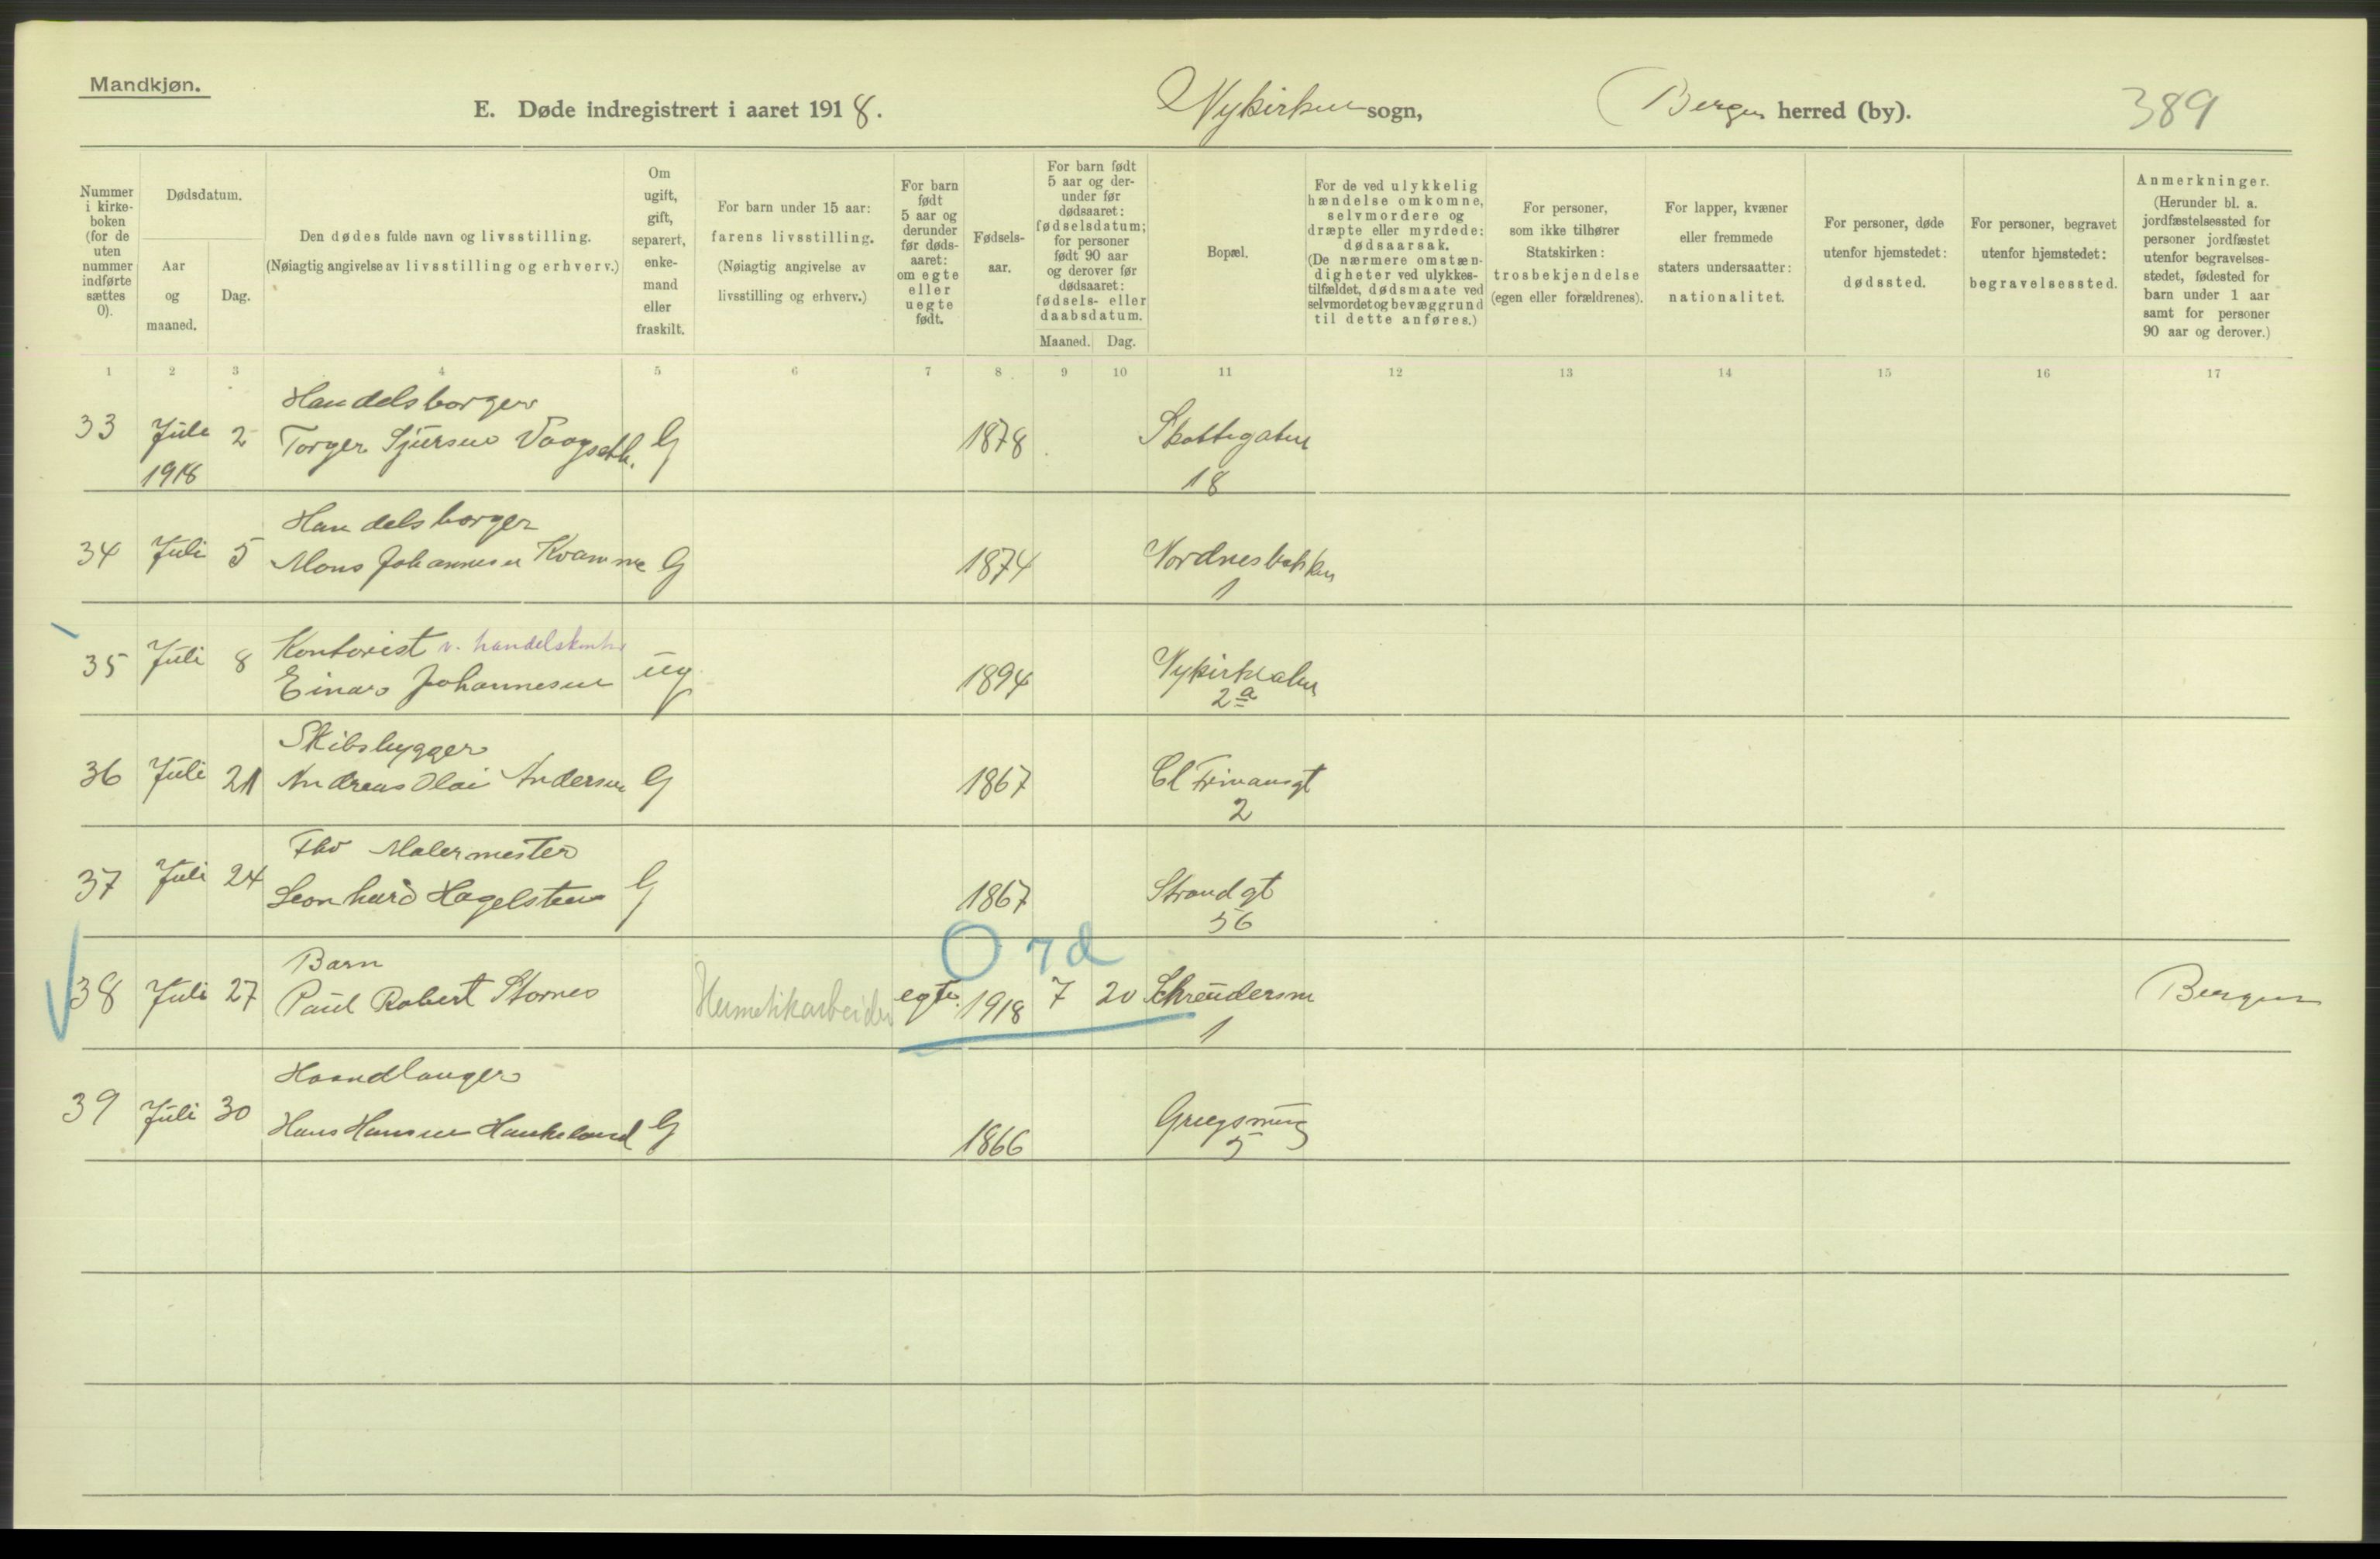 Mandkjøn.
E. Døde indregistrert i aaret 1918.
Nykirken sogn,
Bergen herred (by).
389
Nummer i kirke-boken (for de uten nummer indførte sættes 0).
Dødsdatum.
Aar og maaned.
Dag.
Den dødes fulde navn og livsstilling.
(Nøiagtig angivelse av livsstilling og erhverv.)
Om ugift, gift, separert, enke-mand eller fraskilt.
For barn under 15 aar: farens livsstilling.
(Nøiagtig angivelse av livsstilling og erhverv.)
For barn født 5 aar og derunder før døds-aaret: om egte eller uegte født.
Fødsels-aar.
For barn født 5 aar og der-under før dødsaaret: fødselsdatum; for personer født 90 aar og derover før dødsaaret: fødsels- eller daabsdatum.
Maaned.
Dag.
Bopæl.
For de ved ulykkelig hændelse omkomne, selvmordere og dræpte eller myrdede: dødsaarsak.
(De nærmere omstæn-digheter ved ulykkes-tilfældet, dødsmaate ved selvmordet og bevæggrund til dette anføres.)
For personer, som ikke tilhører Statskirken: trosbekjendelse (egen eller forældrenes).
For lapper, kvæner eller fremmede staters undersaatter: nationalitet.
For personer, døde utenfor hjemstedet: dødssted.
For personer, begravet utenfor hjemstedet: begravelsessted.
Anmerkninger.
(Herunder bl. a. jordfæstelsessted for personer jordfæstet utenfor begravelses-stedet, fødested for barn under 1 aar samt for personer 90 aar og derover.)
1 2 3 4 5 6 7 8 9 10 11 12 13 14 15 16 17
Handelsborger
33 Juli 2 Torger Sjursen Vaagseth. G 1878 Skottegaten
1918 18
Handelsborger
34 Juli 5 Mons Johannesen Kvamme G 1874 Nordnesbakken
1
Kontorist v. handelskontor
35 Juli 8 Einar Johannesen ug 1894 Nykirkealm
2a
Skibsbygger
36 Juli 21 Andreas Olai Andersen G 1867 Cl Frimansgt
2
Fhv Malermester
37 Juli 24 Leonhard Hagelsteen G 1867 Strandgt
56
0 7 d
Barn
38 Juli 27 Paul Robert Stornes Hermetikarbeider egte. 1918 7 20 Schreudersm Bergen
1
Haandlanger
39 Juli 30 Hans Hansen Haukeland G 1866 Griegsmug
5